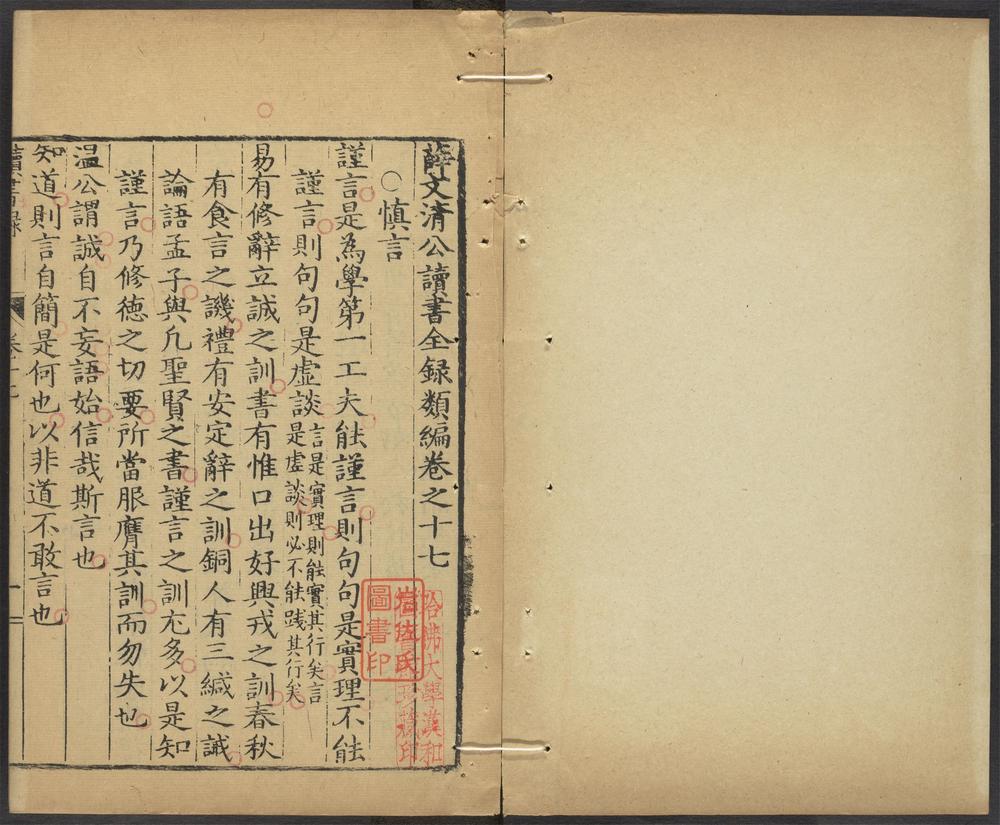 薛文清公讀書全録類編卷之十七
○慎言
謹言是為學第一工夫能謹言則句句是實理不能
謹言則句句是虛談言是實理則能實其行矣言
是虛談則必不能踐其行矣
易有修辭立誠之訓書有惟口出好興戎之訓春秋
有食言之譏禮有安定辭之訓銅人有三緘之誡
論語孟子與凡聖賢之書謹言之訓尤多以是知
謹言乃修德之切要所當服膺其訓而勿失也
温公謂誠自不妄語始信哉斯言也
知道則言自簡是何也以非道不敢言也
讀書録
卷十七
一
哈佛大學漢和
圖書館珍藏印
佐氏
圖書印